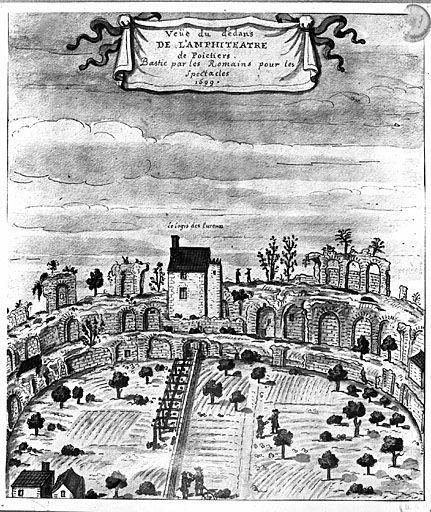 Veüe du dedans
DE L'AMPHITEATRE
de Poictiers.
Bastie par les Romains pour les
Spectacles
1699.
le logis des